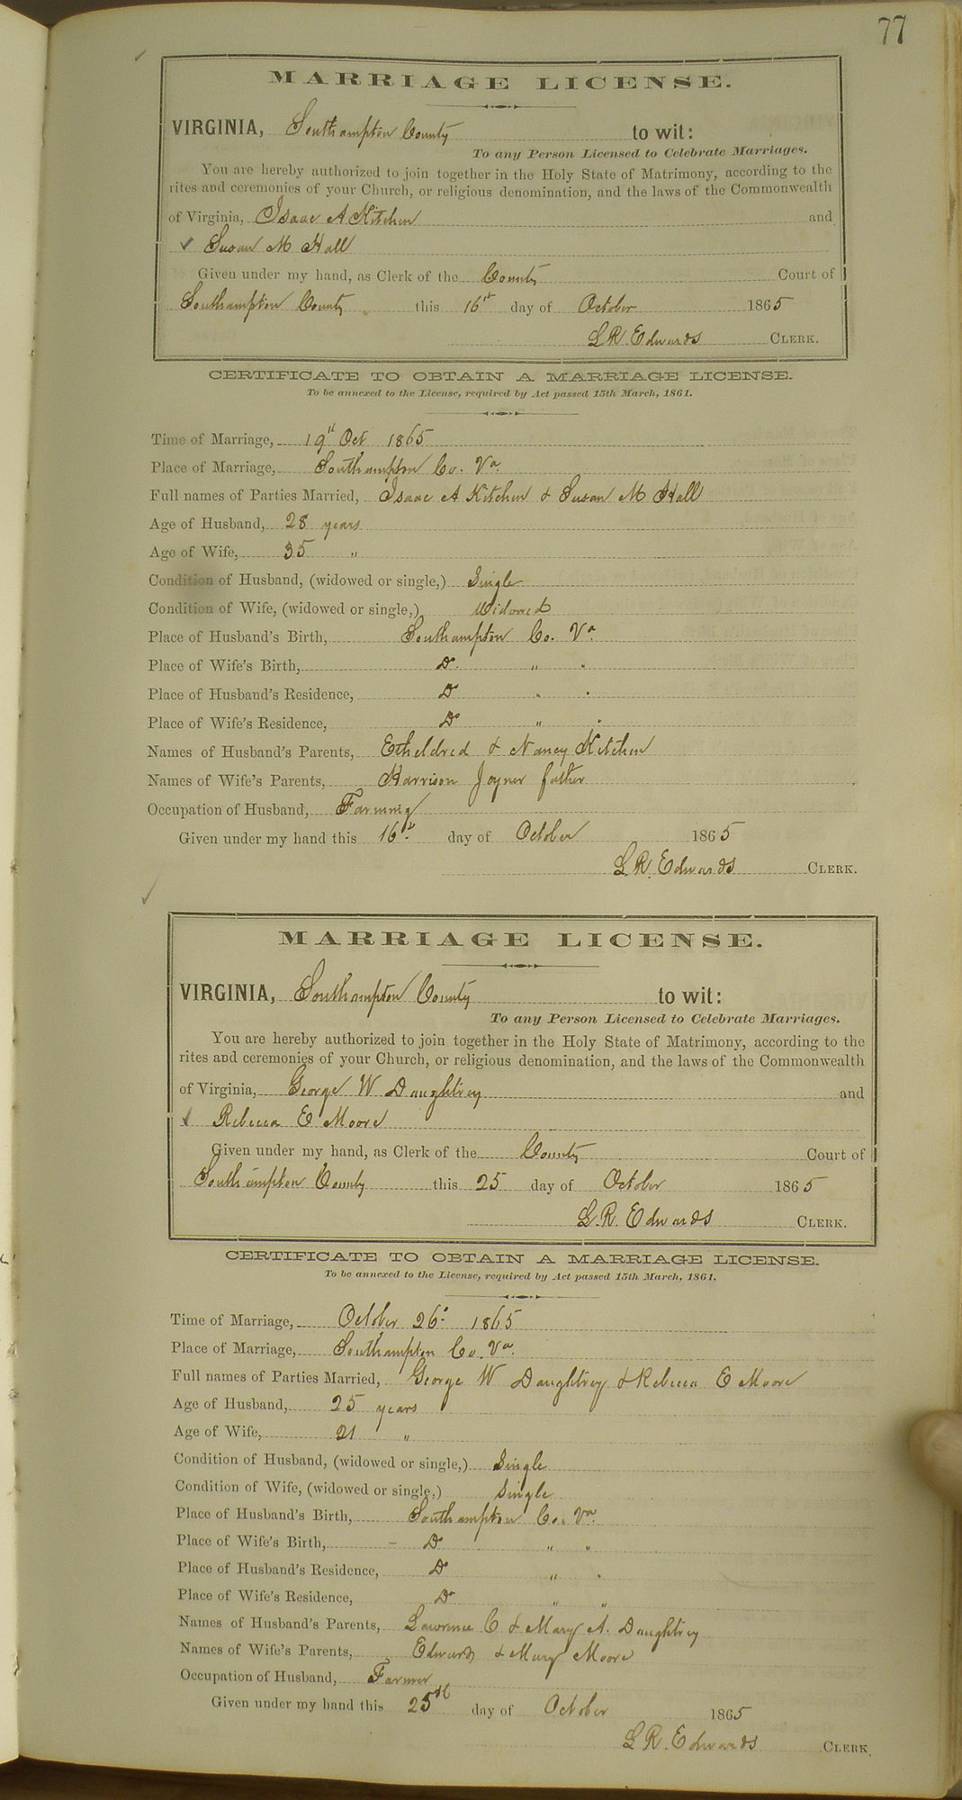 77
MARRIAGE LICENSE.
VIRGINIA, Southampton County to wit:
To any Person Licensed to Celebrate Marriages.
You are hereby authorized to join together in the Holy State of Matrimony, according to the
rites and ceremonies of your Church, or religious denomination, and the laws of the Commonwealth
of Virginia, Isaac A Kitchen and
Susan M Hall
Given under my hand, as Clerk of the County Court of
Southampton County this 16th day of October 1865
L R. Edwards CLERK.
CERTIFICATE TO OBTAIN A MARRIAGE LICENSE.
To be annexed to the License, required by Act passed 15th March, 1861.
Time of Marriage, 19th Oct 1865
Place of Marriage, Southampton Co. Va
Full names of Parties Married, Isaac A Kitchen & Susan M Hall
Age of Husband, 28 years
Age of Wife, 35 "
Condition of Husband, (widowed or single,) Single
Condition of Wife, (widowed or single,) Widowed
Place of Husband's Birth, Southampton Co. Va
Place of Wife's Birth, Do " "
Place of Husband's Residence, Do " "
Place of Wife's Residence, Do " "
Names of Husband's Parents, Etheldred & Nancy Kitchen
Names of Wife's Parents, Harrison Joyner father
Occupation of Husband, Farming
Given under my hand this 16th day of October 1865
L R. Edwards CLERK.
MARRIAGE LICENSE.
VIRGINIA, Southampton County to wit:
To any Person Licensed to Celebrate Marriages.
You are hereby authorized to join together in the Holy State of Matrimony, according to the
rites and ceremonies of your Church, or religious denomination, and the laws of the Commonwealth
of Virginia, George W Daughtrey and
Rebecca E Moore
Given under my hand, as Clerk of the County Court of
Southampton County this 25 day of October 1865
L. R. Edwards CLERK.
CERTIFICATE TO OBTAIN A MARRIAGE LICENSE.
To be annexed to the License, required by Act passed 15th March, 1861.
Time of Marriage, October 26th 1865
Place of Marriage, Southampton Co. Va
Full names of Parties Married, George W Daughtrey & Rebecca E Moore
Age of Husband, 25 years
Age of Wife, 21 "
Condition of Husband, (widowed or single,) Single
Condition of Wife, (widowed or single,) Single
Place of Husband's Birth, Southampton Co. Va
Place of Wife's Birth, Do " "
Place of Husband's Residence, Do " "
Place of Wife's Residence, Do " "
Names of Husband's Parents, Lawrence C & Mary A. Daughtrey
Names of Wife's Parents, Edward & Mary Moore
Occupation of Husband, Farmer
Given under my hand this 25th day of October 1865
L R. Edwards CLERK.